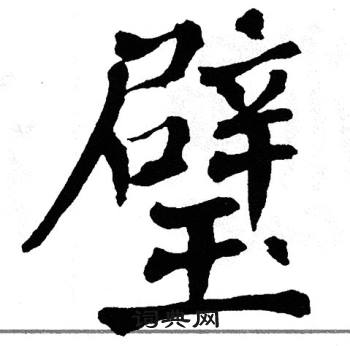 璧
词典网